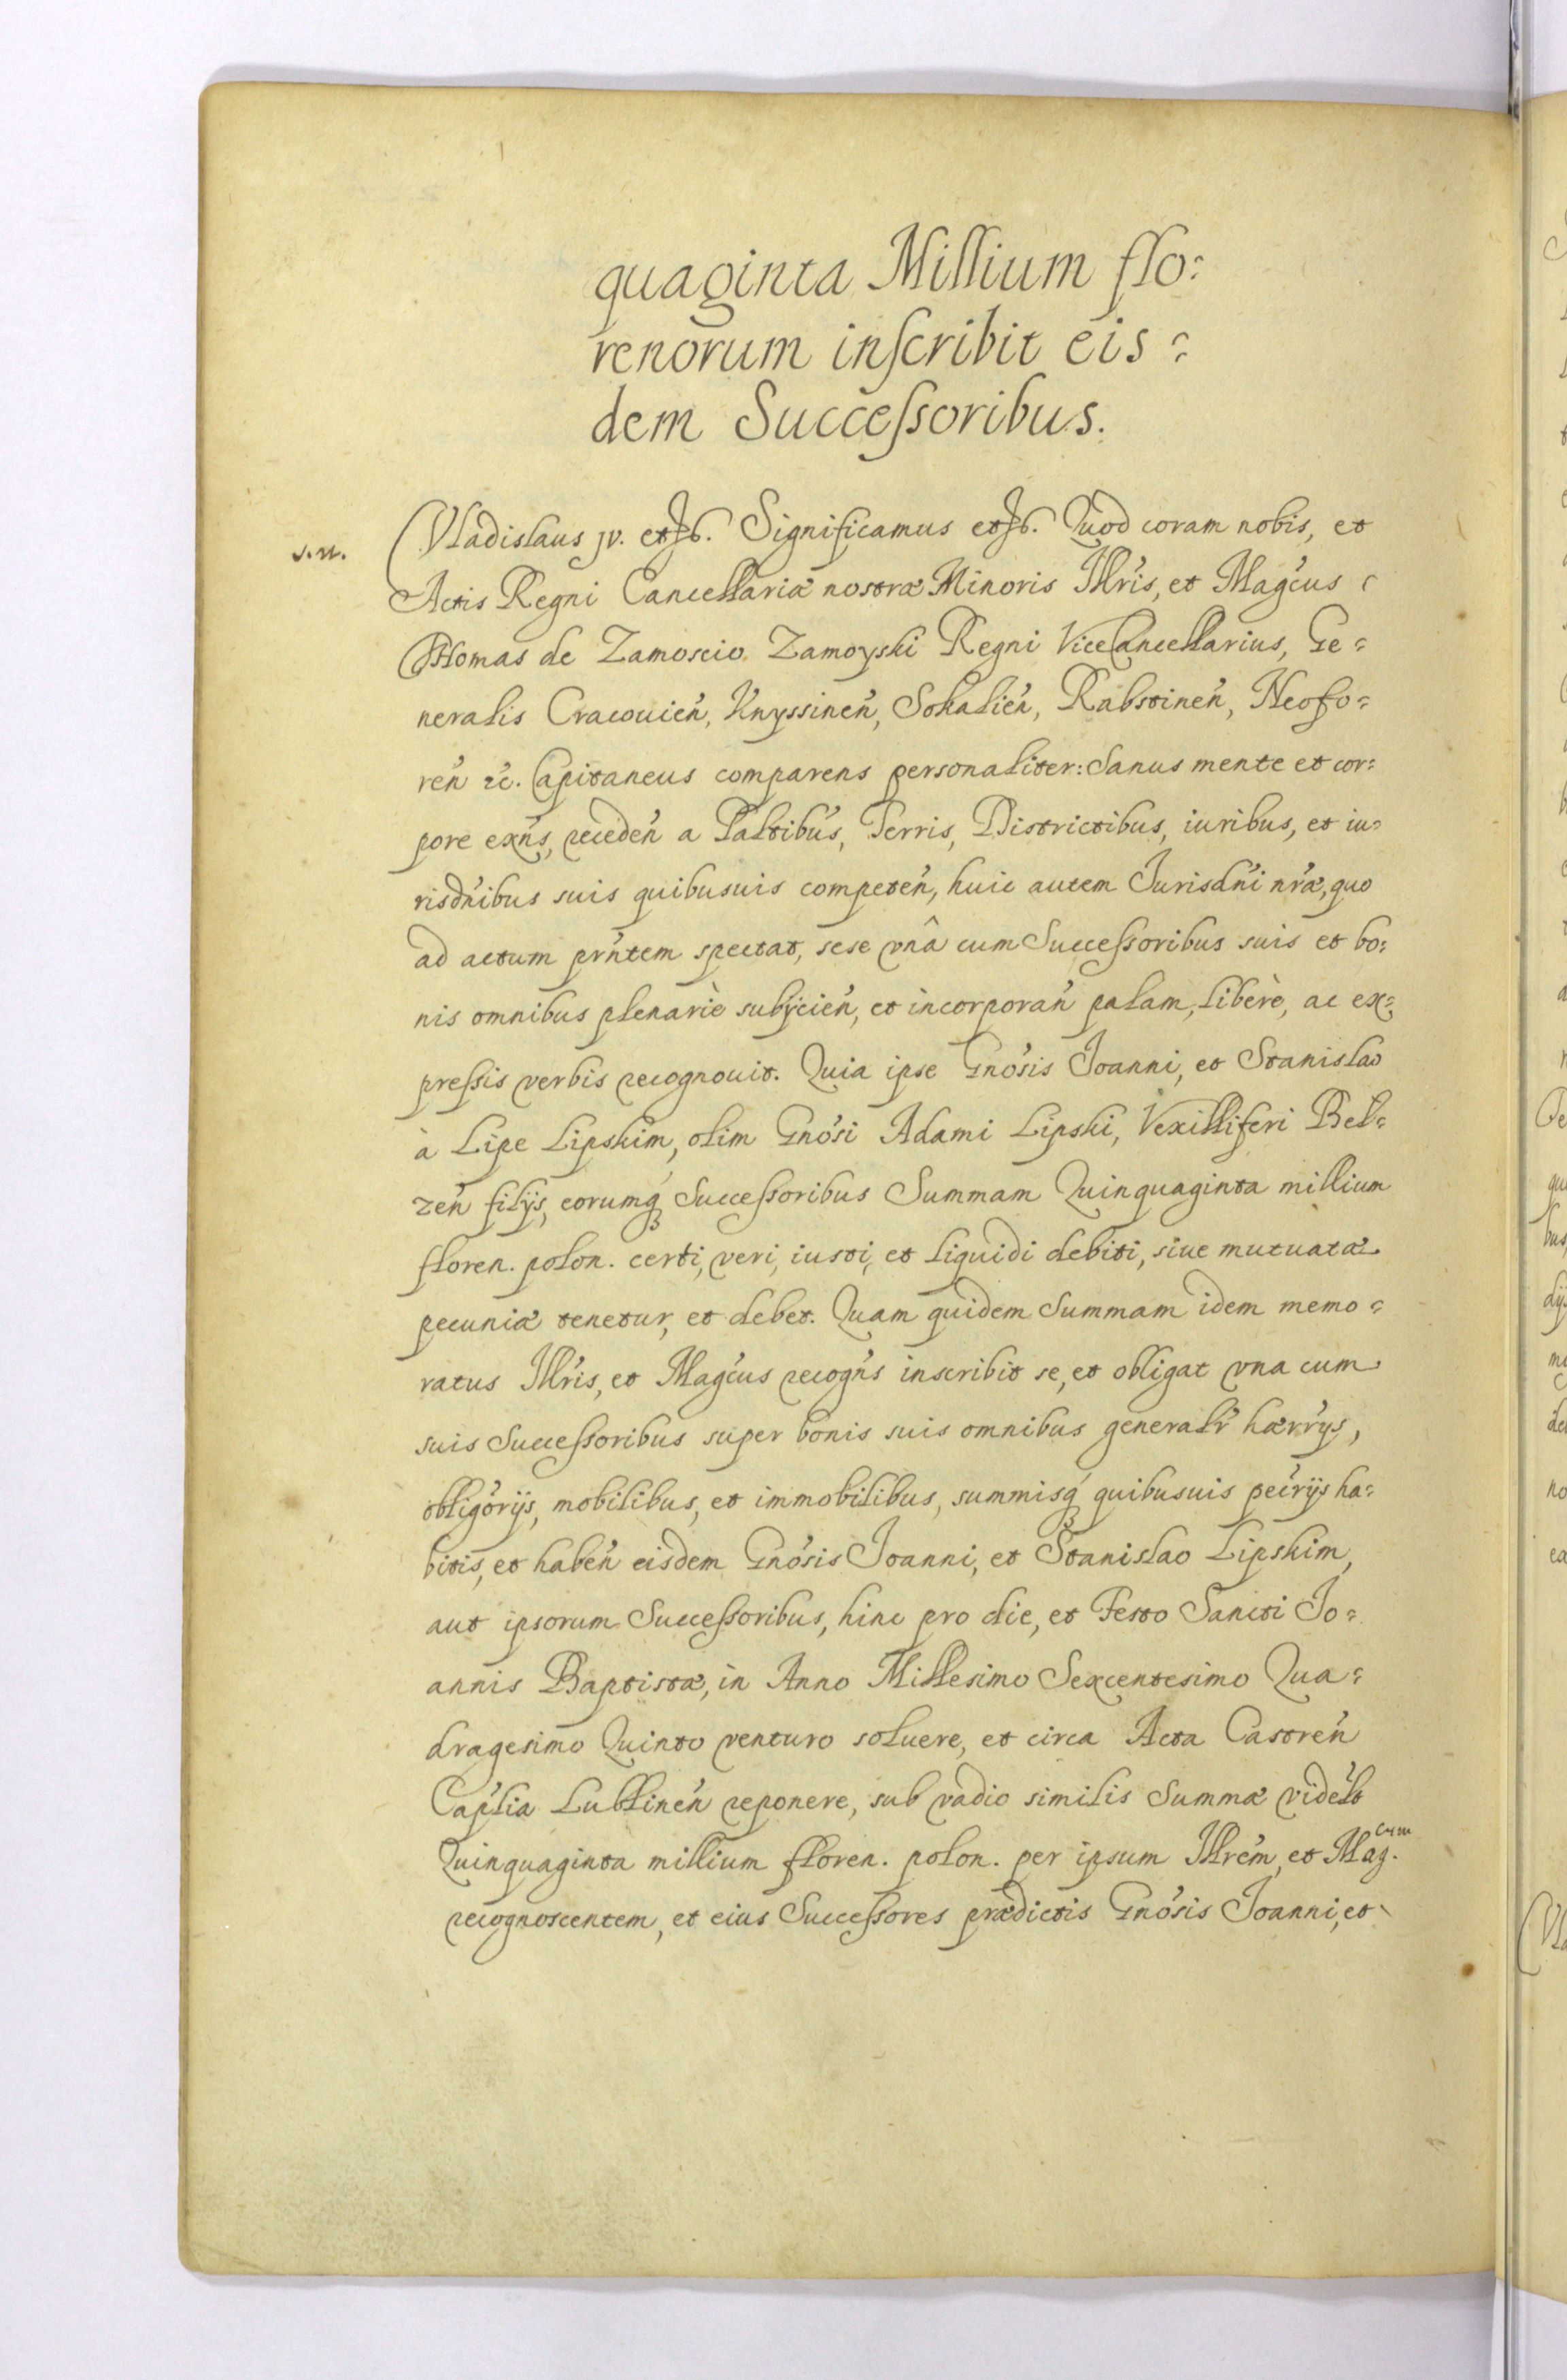 quaginta Millium flo:
renorum inscribit eis:
dem Successoribus.
Vladislaus jv. Significamus Quod coram nobis, et
Actis Regni Cancellariæ nostræ Minoris Illris, et Magcus
Thomas de Zamoscio Zamoyski Regni ViceCancellarius, Ge:
neralis Cracouien, Knyssinen, Sokalien, Rabstinen, Neofo:
ren &c. Capitaneus comparens personaliter: Sanus mente et cor:
pore exns, receden a Paltibus, Terris, Districtibus, iuribus, et iu:
risdnibus suis quibusuis competen, huic autem Jurisdni nræ, quo
ad actum prntem spectat, sese vnâ cum Successoribus suis et bo:
nis omnibus plenariè subijcien, et incorporan palam, liberè, ac ex:
pressis verbis recognouit. Quia ipse Gnosis Joanni, et Stanislao
à Lipe Lipskim, olim Gnosi Adami Lipski, Vexilliferi Bel:
zen filijs, eorumq Successoribus Summam Quinquaginta millium
floren. polon. certi, veri, iusti, et liquidi debiti, siue mutuatæ
pecuniæ tenetur, et debet. Quam quidem Summam idem memo:
ratus Illris, et Magcus recogns inscribit se, et obligat vna cum
suis Successoribus super bonis suis omnibus generalr hærrijs,
obligorijs, mobilibus, et immobilibus, summisq quibusuis pecrijs ha:
bitis, et haben eisdem Gnosis Joanni, et Stanislao Lipskim,
aut ipsorum Successoribus, hinc pro die, et Festo Sancti Jo:
annis Baptistæ, in Anno Millesimo Sexcentesimo Qua:
dragesimo Quinto venturo soluere, et circa Acta Castren
Caplia Lublinen reponere, sub vadio similis Summæ videlt
Quinquaginta millium floren. polon. per ipsum Illrem, et Mag.cum
recognoscentem, et eius Successores prædictis Gnosis Joanni, et